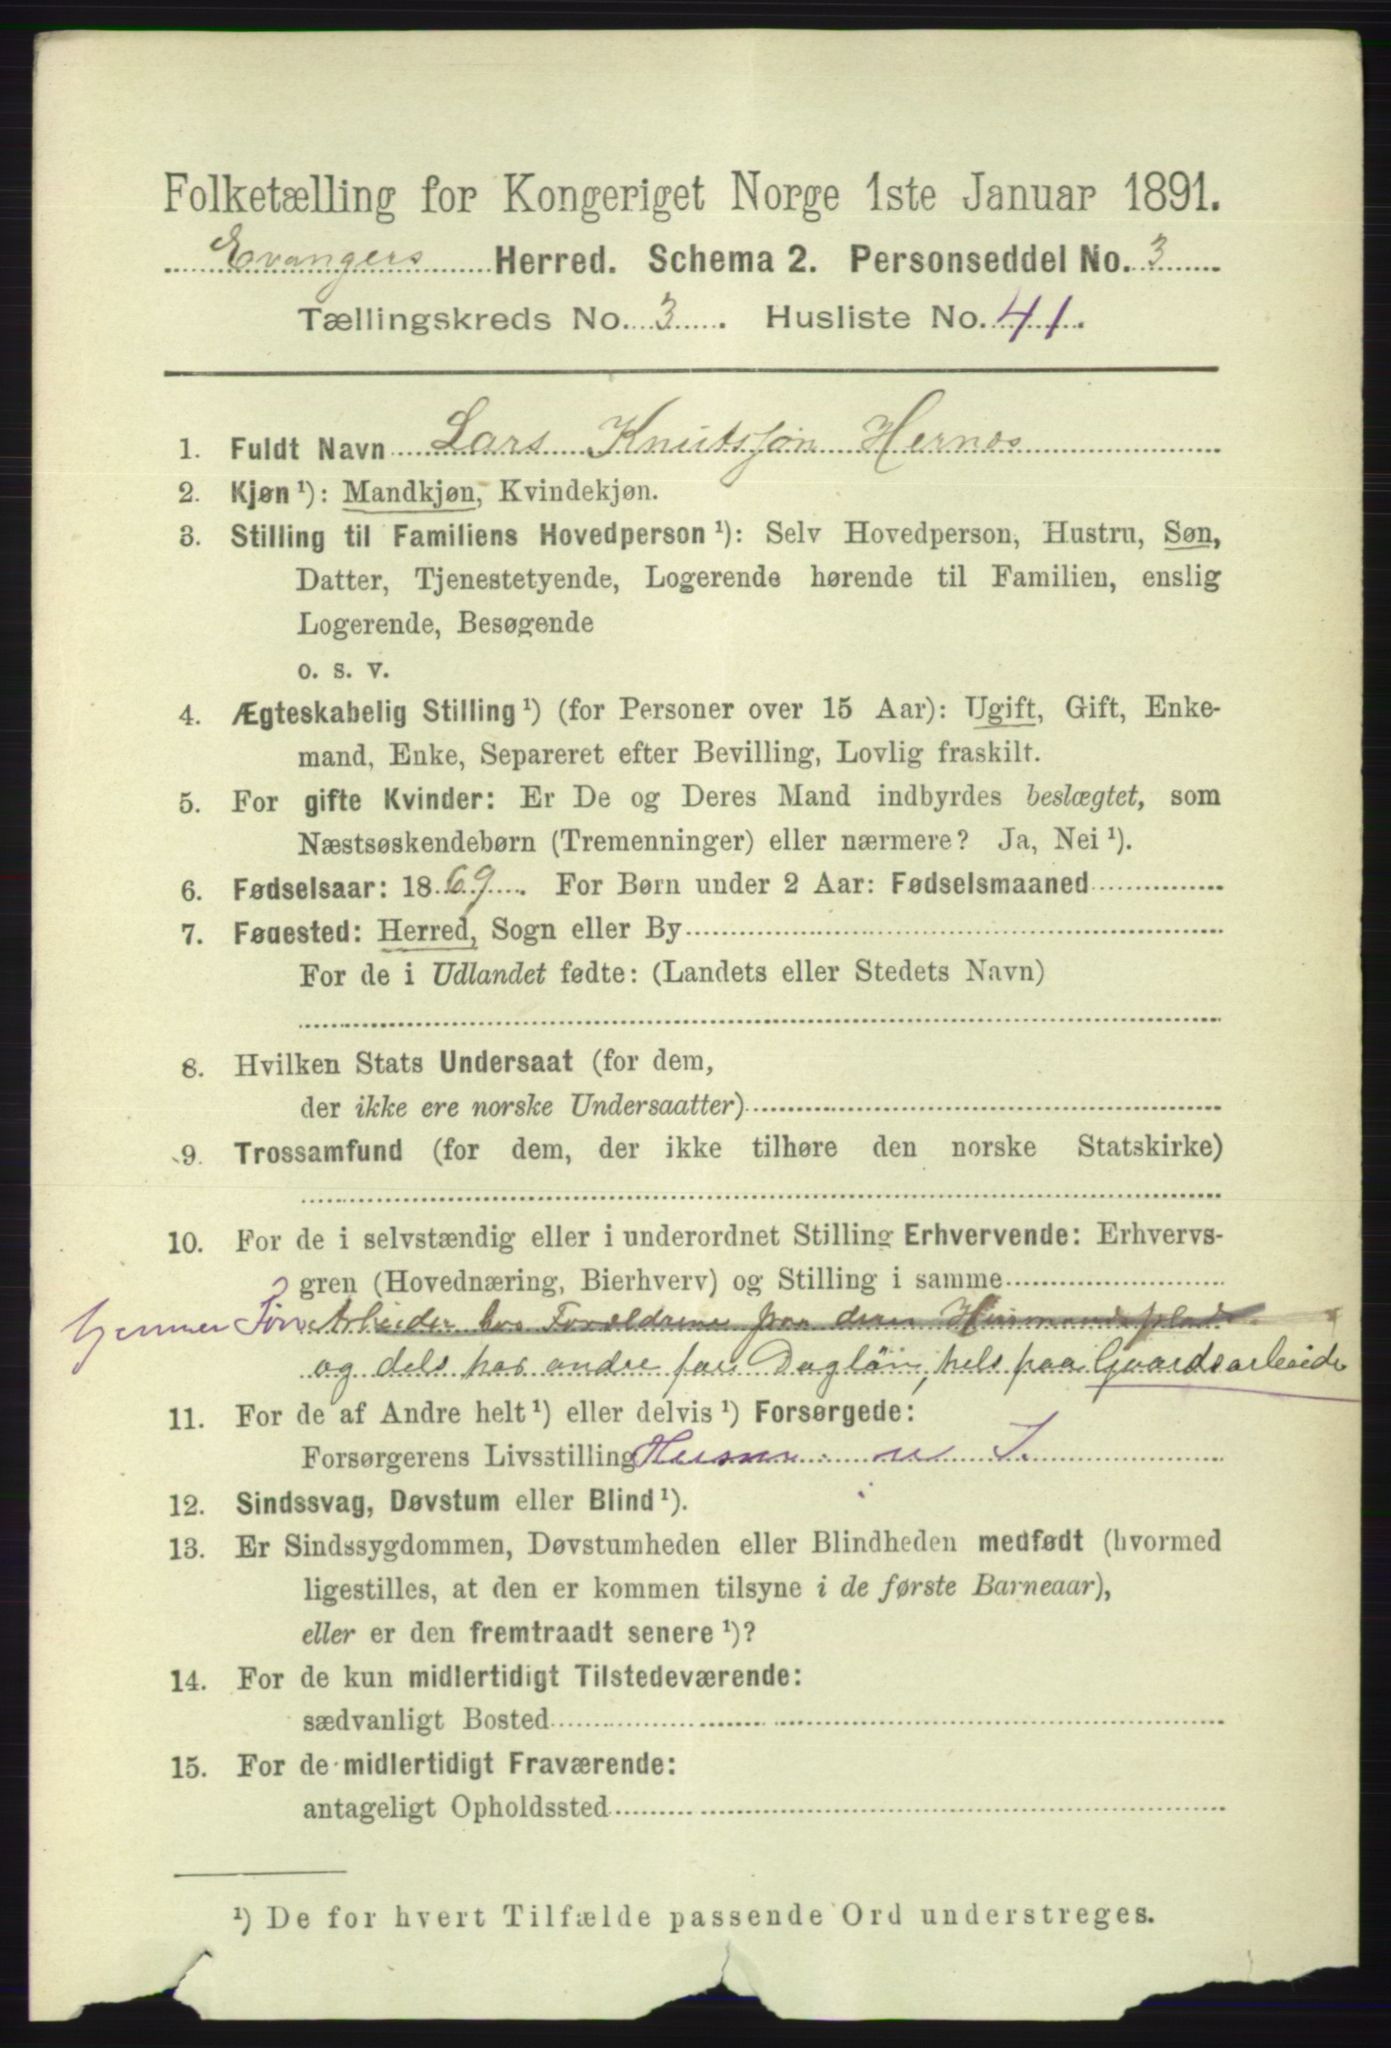 Folketælling for Kongeriget Norge 1ste Januar 1891.
Evangers Herred. Schema 2. Personseddel No. 3
Tællingskreds No. 3. Husliste No. 41.
1. Fuldt Navn Lars Knutsson Hernes
2. Kjøn ¹): Mandkjøn, Kvindekjøn.
3. Stilling til Familiens Hovedperson ¹): Selv Hovedperson, Hustru, Søn,
Datter, Tjenestetyende, Logerende hørende til Familien, enslig
Logerende, Besøgende
o. s. v.
4. Ægteskabelig Stilling ¹) (for Personer over 15 Aar): Ugift, Gift, Enke-
mand, Enke, Separeret efter Bevilling, Lovlig fraskilt.
5. For gifte Kvinder: Er De og Deres Mand indbyrdes beslægtet, som
Næstsøskendebørn (Tremenninger) eller nærmere? Ja, Nei ¹).
6. Fødselsaar: 1869. For Børn under 2 Aar: Fødselsmaaned
7. Føaested: Herred, Sogn eller By
For de i Udlandet fødte: (Landets eller Stedets Navn)
8. Hvilken Stats Undersaat (for dem,
der ikke ere norske Undersaatter)
9. Trossamfund (for dem, der ikke tilhøre den norske Statskirke)
10. For de i selvstændig eller i underordnet Stilling Erhvervende: Erhvervs-
gren (Hovednæring, Bierhverv) og Stilling i samme
hjemmev Søn Arbeider hos Forældrene paa deres Husmandsplads
og dels hos andre for Dagløn, hels paa Gaardsarbeide
11. For de af Andre helt ¹) eller delvis ¹) Forsørgede:
Forsørgerens Livsstilling Husm. m J.
12. Sindssvag, Døvstum eller Blind ¹).
13. Er Sindssygdommen, Døvstumheden eller Blindheden medfødt (hvormed
ligestilles, at den er kommen tilsyne i de første Barneaar),
eller er den fremtraadt senere ¹)?
14. For de kun midlertidigt Tilstedeværende:
sædvanligt Bosted
15. For de midlertidigt Fraværende:
antageligt Opholdssted
¹) De for hvert Tilfælde passende Ord understreges.